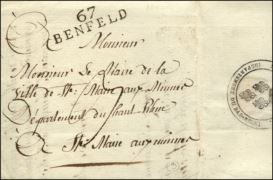 67
BENFELD
Monsieur
Monsieur Le Maire de la
Ville de Ste Marie aux Mines
Département du haut Rhin
Ste Marie aux mines